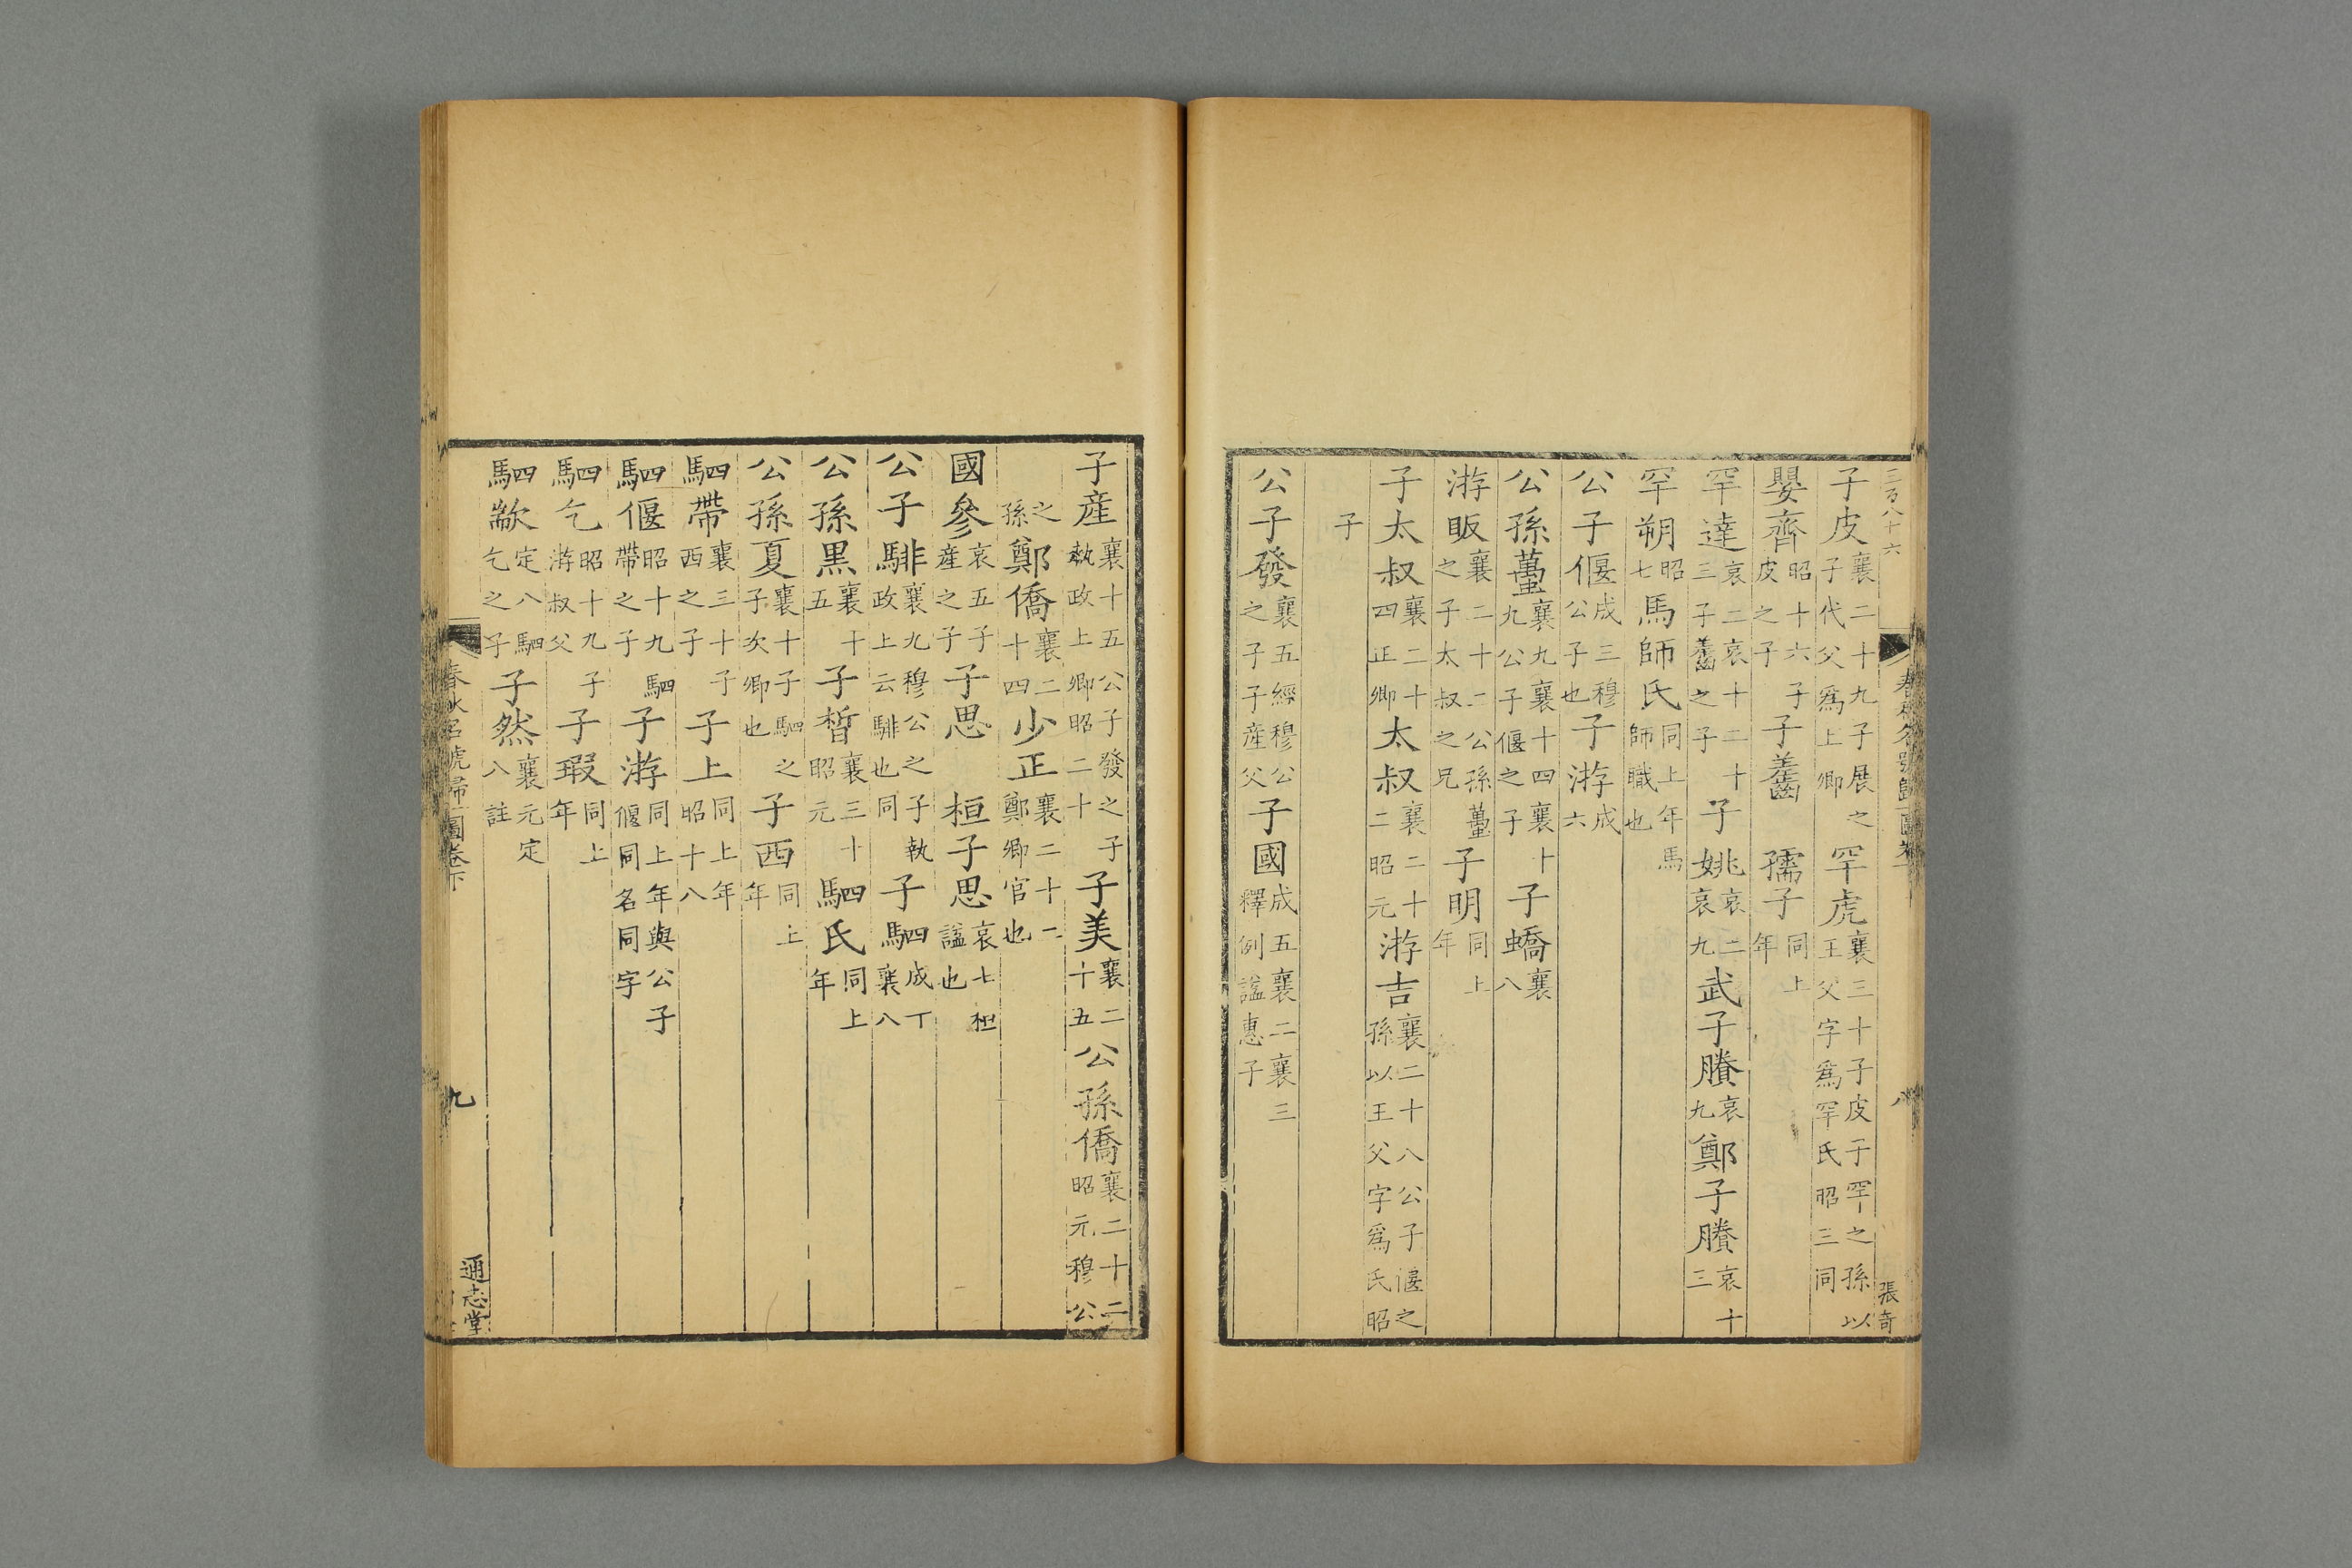 三百八十六
子皮襄二十九子展之子代父爲上卿罕虎襄三十子皮子罕之孫以王父字爲罕氏昭三同
嬰齊昭十六子皮之子子齹孺子同上年
罕達哀二哀十二十三子齹之子子姚哀二哀九武子賸哀九鄭子賸哀十三
罕朔昭七馬師氏同上年馬師職也
公子偃成三穆公子也子游成六
公孫蠆襄九襄十四襄九公子偃之子子蟜襄八
游眅襄二十二公孫蠆之子太叔之兄子明同上年
子太叔襄二十四正卿太叔襄二十二昭元游吉襄二十八公子偃之孫以王父字爲氏昭
子
公子發襄五經穆公之子子産父子國成五襄二襄三釋例諡惠子
春秋名號歸一圖卷下
八
張奇
子産襄十五公子發之子執政上卿昭二十子美襄二十五公孫僑襄二十二昭元穆公
之孫鄭僑襄二十四少正襄二十二鄭卿官也
國參哀五子産之子子思桓子思哀七桓諡也
公子騑襄九穆公之子執政上云騑也同子駟成十襄八
公孫黑襄十五子晳襄三十昭元駟氏同上年
公孫夏襄十子駟之子次卿也子西同上年
駟帶襄三十子西之子子上同上年昭十八
駟偃昭十九駟帶之子子游同上年與公子偃同名同字
駟乞昭十九子游叔父子瑕同上年
駟歂定八駟乞之子子然襄元定八註
春秋名號歸一圖卷下
九
通志堂